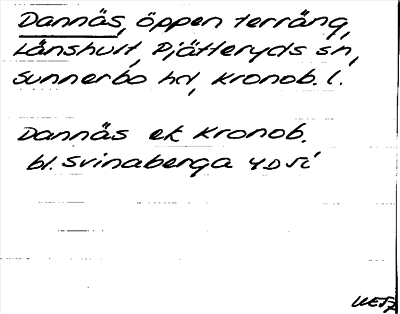 Dannäs, öppen terräng,
Lånshult, Pjätteryds sn,
Sunnerbo hd, Kronob. l.
Dannäs ek Kronob.
bl. Svinaberga 4D5i